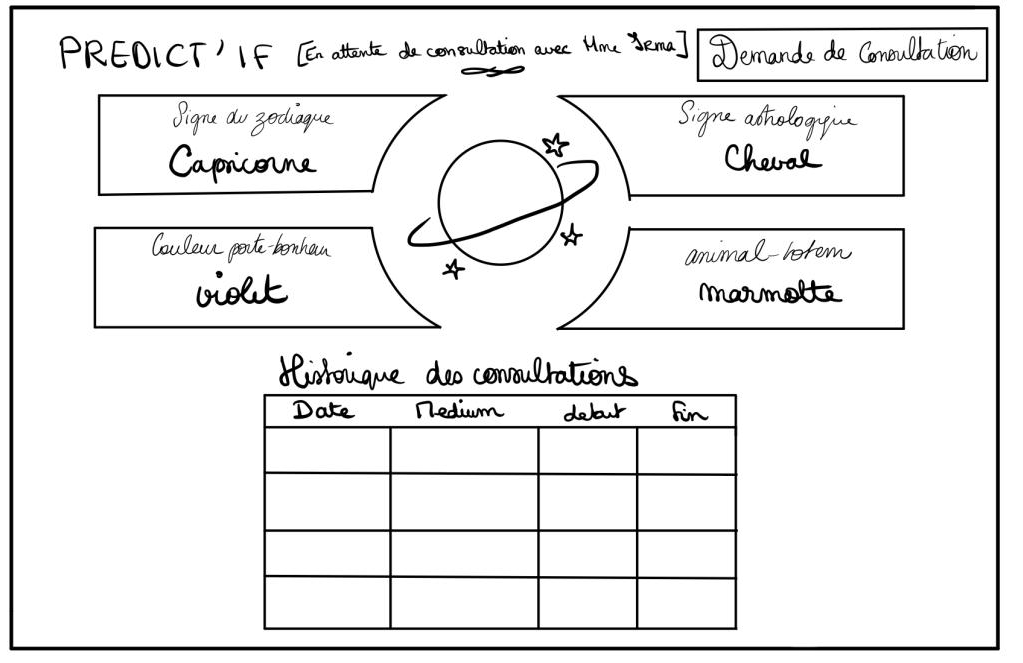 PREDICT'IF [En attente de consultation avec Mme Irma] Demande de Consultation
Signe du zodiaque
Capricorne
Signe astrologique
Cheval
Couleur porte-bonheur
violet
animal-totem
marmotte
Historique des consultations
Date Medium debut fin